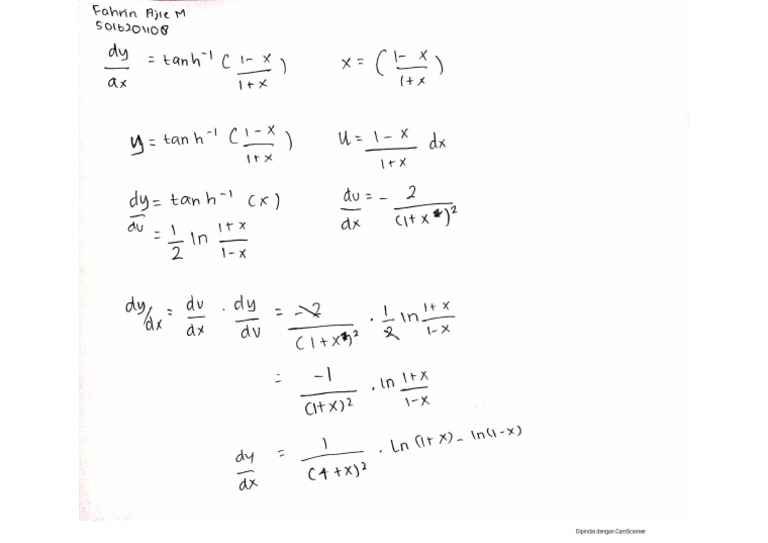 Fahrin Ajie M
5016201108
dy/ax = tanh⁻¹ (1-x/1+x)   x = (1-x/1+x)
y = tanh⁻¹ (1-x/1+x)   u = 1-x/1+x dx
dy/du = tanh⁻¹ (x)   du/dx = - 2/(1+x)²
= 1/2 ln 1+x/1-x
dy/dx = du/dx · dy/du = -2/(1+x)² · 1/2 ln 1+x/1-x
= -1/(1+x)² · ln 1+x/1-x
dy/dx = 1/(1+x)² · ln (1+x) - ln(1-x)
Dipindai dengan CamScanner